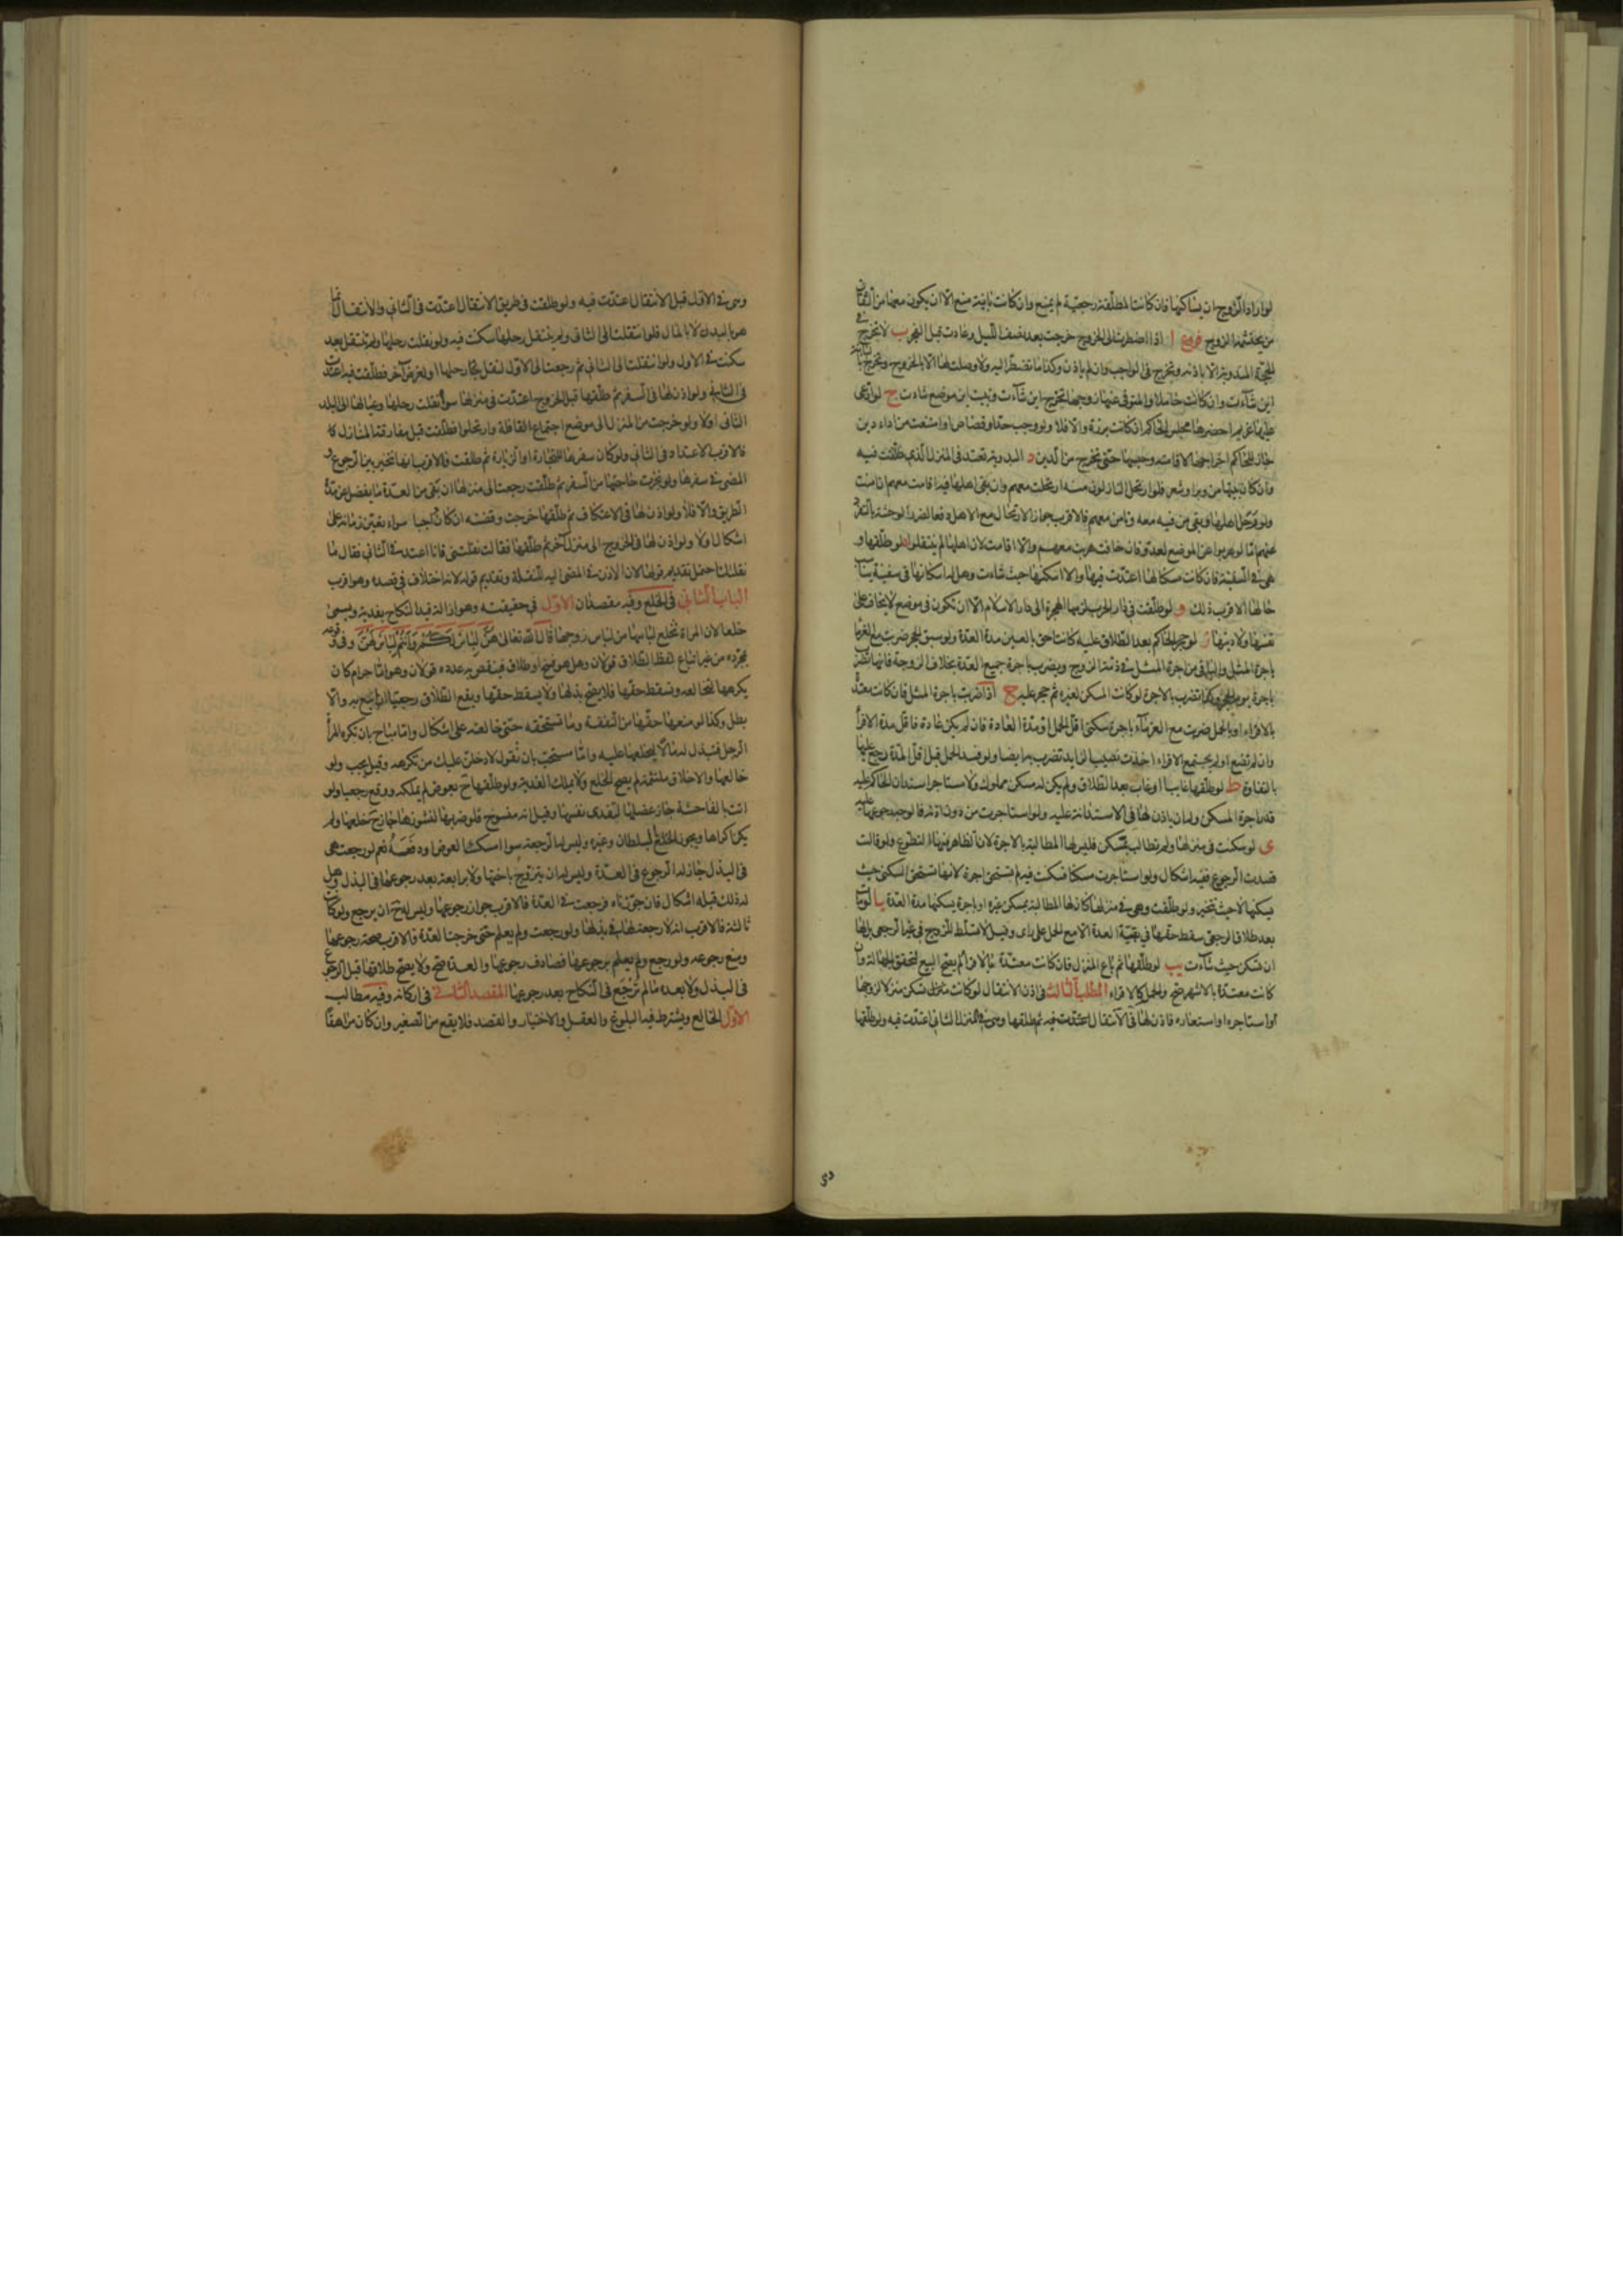 لو اراد الزوج ان يساكنها فان كانت المطلقة رجعية لم يمنع وان كانت باينة منع الا ان يكون معها من الثقات
من يحتشمه الزوج فروع ا اذا اضطرت الى الخروج خرجت بعد نصف الليل وعادت قبل الفجر ب لا تخرج في
الحجة المندوبة الا باذنه وتخرج في الواجب وان لم ياذن وكذا ما تضطر اليه ولا وصلة لها الا بالخروج وتخرج
اين شآءت وان كانت حاملا والمتوفى عنها زوجها تخرج اين شآءت وتبيت اين موضع شاءت ج لو ادعى
عليها غريم احضرها مجلس الحاكم ان كانت برزة والا فلا ولو وجب حد او قصاص او امتنعت من اداء دين
جاز للحاكم اخراجها لاقامته وحبسها حتى تخرج من الدين د البدوية تعتد في المنزل الذي طلقت فيه
وان كان بيتها من وبر او شعر فلو ارتحل النازلون منه ارتحلت معهم وان بقي اهلها فيه اقامت معهم ان امنت
ولو رحل اهلها وبقي من فيه منعة وتامن معهم فالاقرب جواز الارتحال مع الاهل دفعا لضرر الوحشة بالتفرد
عنهم اما لو هربوا عن الموضع لعدو فان خافت هربت معهم والا اقامت لان اهلها لم ينتقلوا ه لو طلقها و
هي في السفينة فان كانت مسكنا لها اعتدت فيها والا اسكنها حيث شاءت وهل له اسكانها في سفينة يناسب
حالها الاقرب ذلك و لو طلقت في دار الحرب لزمها الهجرة الى دار الاسلام الا ان تكون في موضع لا يخاف على
نفسها ولا دينها ز لو حجر الحاكم بعد الطلاق عليه كانت احق بالعين مدة العدة ولو سبق الحجر ضربت مع الغرما
باجرة المثل والباقي من اجرة المثل في ذمة الزوج ويضرب باجرة جميع العدة بخلاف الزوجة فانها تضرب
باجرة يوم الحجر وكذا تضرب بالاجرة لو كانت المسكن لغيره ثم حجر عليه ح اذا ضربت باجرة المثل فان كانت معتدة
بالاقراء او بالحمل ضربت مع الغرمآء باجرة سكنى اقل الحمل او مدة العادة فان لم يكن عادة فاقل مدة الاقرأ
وان لم تضع او لم يجتمع الاقراء اخذت نصيب الزايد تضرب به ايضا ولو فسد الحمل قبل اقل المدة رجع عليها
بالتفاوت ط لو طلقها غايبا او غاب بعد الطلاق ولم يكن له مسكن مملوك ولا مستاجر استدان الحاكم عليه
قدر اجرة المسكن وله ان ياذن لها في الاستدانة عليه ولو استاجرت من دون اذنه فالوجه رجوعها عليه
ى لو سكنت في منزلها ولم تطالب بمسكن فليس لها المطالبة بالاجرة لان الظاهر منها التطوع ولو قالت
قصدت الرجوع ففيه اشكال ولو استاجرت مسكنا فسكنت فيه لم يستحق اجرة لانها تستحق السكنى حيث
يسكنها لا حيث تتخير ولو طلقت وهي في منزلها كان لها المطالبة بمسكن غيره او باجرة يسكنها مدة العدة يا لو مات
بعد طلاق الرجعي سقط حقها في بقية العدة الا مع الحمل على راى وقيل لا تسلط للزوج في غير الرجعي بل لها
ان تسكن حيث شآءت يب لو طلقها ثم باع المنزل فان كانت معتدة بالاقرآء لم يصح البيع لتحقق الجهالة وان
كانت معتدة بالاشهر صح والحمل كالاقراء المطلب الثالث في اذن الانتقال لو كانت منزل تسكن منزلا لزوجها
او استاجره او استعاره فاذن لها في الانتقال اعتدت فيه ثم طلقها وهي في المنزل الثاني اعتدت فيه ولو طلقها
وهي في الاول قبل الانتقال اعتدت فيه ولو طلقت في طريق الانتقال اعتدت في الثاني والانتقال انما
هو بالبدن لا بالمال فلو انتقلت الى الثاني ولم ينتقل رحلها سكنت فيه ولو نقلت رحلها ولم تنتقل بعد
سكنت في الاول ولو انتقلت الى الثاني ثم رجعت الى الاول لنقل رحلها او لغرض آخر فطلقت فيه اعتدت
في الثاني ولو اذن لها في السفر ثم طلقها قبل الخروج اعتدت في منزلها سوآء نقلت رحلها وعيالها الى البلد
الثاني اولا ولو خرجت من المنزل الى موضع اجتماع القافلة وارتحلوا فطلقت قبل مفارقة المنازل كا
فالاقرب الاعتداد في الثاني ولو كان سفرها للتجارة او الزيارة ثم طلقت فالاقرب انها تتخير بين الرجوع و
المضى في سفرها ولو نجزت حاجتها من السفر ثم طلقت رجعت الى منزلها ان بقي من العدة ما يفضل عن مدة
الطريق والا فلا ولو اذن لها في الاعتكاف ثم طلقها خرجت وقضته ان كان واجبا سواء تعين زمانه على
اشكال او لا ولو اذن لها في الخروج الى منزل آخر ثم طلقها فقالت نقلتني فانا اعتد في الثاني فقال ما
نقلتك احتمل تقديم قولها لان الاذن في المضى اليه للنقلة وتقديم قوله لانه اختلاف في قصده وهو اقرب
الباب الثاني في الخلع وفيه مقصدان الاول في حقيقته وهو ازالة قيد النكاح بفدية ويسمى
خلعا لان المراة تخلع لباسها من لباس زوجها قال الله تعالى هن لباس لكم وانتم لباس لهن وفي وقوعه
بمجرده من غير اتباع لفظ الطلاق قولان وهل هو فسخ او طلاق فينقص به عدده قولان وهو اما حرام كان
يكرهها لتخالعه وتسقط حقها فلا يصح بذلها ولا يسقط حقها ويقع الطلاق رجعيا ان اتبع به والا
بطل وكذا لو منعها حقها من النفقة وما تستحقه حتى خالعته على اشكال واما مباح بان تكره المرأ
الرجل فتبذل له مالا ليخلعها عليه واما مستحب بان تقول لادخلن عليك من تكرهه وقيل يجب ولو
خالعها والاخلاق ملتئمة لم يصح الخلع ولا يملك الفدية ولو طلقها ح بعوض لم يملكه ووقع رجعيا ولو
اتت بالفاحشة جاز عضلها لتفدى نفسها وقيل انه منسوخ فلو ضربها لنشوزها جاز ح خلعها ولم
يكن اكراها ويجوز الخلع للسلطان وغيره وليس له الرجعة سوا امسك العوض او دفعه نعم لو رجعت هي
في البذل جاز له الرجوع في العدة وليس له ان يتزوج باختها ولا برابعة بعد رجوعها في البذل وهل
له ذلك قبله اشكال فان جوزناه فرجعت في العدة فالاقرب جواز رجوعها وليس له ح ان يرجع ولو كانت
ثالثة فالاقرب انه لا رجعة لها في بذلها ولو رجعت ولم يعلم حتى خرجت العدة فالاقرب صحة رجوعها
ومنع رجوعه ولو رجع ولم يعلم برجوعها فصادف رجوعها والعدة صح ولا يصح طلاقها قبل الرجوع
في البذل ولا بعده ما لم ترجع في النكاح بعد رجوعها المقصد الثاني في اركانه وفيه مطالب
الاول الخالع ويشترط فيه البلوغ والعقل والاختيار والقصد فلا يقع من الصغير وان كان مراهقا